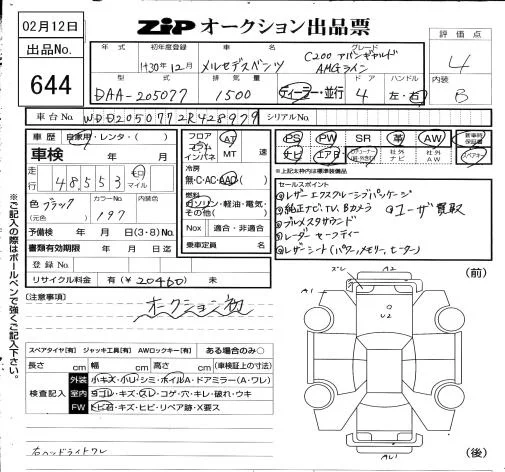 02月12日
ZIP オークション出品票
出品No.
644
評価点
4
内装
B
年式 初年度登録 車名 グレード
H30年12月 メルセデスベンツ C200 アバンギャルド
AMGライン
型式 排気量 ドア ハンドル
DAA-205077 1500 ディーラー・並行 4 左・右
車台No. WDD2050772R428979 シリアルNo.
車歴 自家用・レンタ・( )
車検 年 月
走行 48,553 km マイル
色 ブラック カラーNo. 内装色
(元色) 197
予備検 年 月 日(3・8)No.
書類有効期限 年 月 日迄
登録No.
リサイクル料金 有(¥20460) 未
フロア コラム インパネ AT MT 速
冷房
無・C・AC・AAC
燃料
ガソリン・軽油・電気・その他( )
Nox 適合・非適合
乗車定員 名
PS PW SR 革 AW 新車時保証書
ナビ エアB 社外ナビ 社外AW
※上記太枠内は標準装備品
セールスポイント
レザーエクスクルーシブパッケージ
純正ナビ、TV、Bカメラ ユーザ買取
ブルメスタサウンド
レーダーセーフティー
レザーシート(パワー、メモリー、ヒーター)
[注意事項]
オークション初
スペアタイヤ[有] ジャッキ工具[有] AWロックキー[有] ある場合のみ○
長さ cm 幅 cm 高さ cm (車検証上の寸法)
検査記入
外装 小キズ・小U・シミ・ホイルA・ドアミラー(A・ワレ)
室内 ヨゴレ・キズ・スレ・コゲ・穴・キレ・破れ・ウキ
FW トビ石・キズ・ヒビ・リペア跡・X要ス
右ヘッドライトワレ
※ご記入の際はボールペンで強くご記入下さい。
ズレ
A2
A1
U2
(前)
(後)